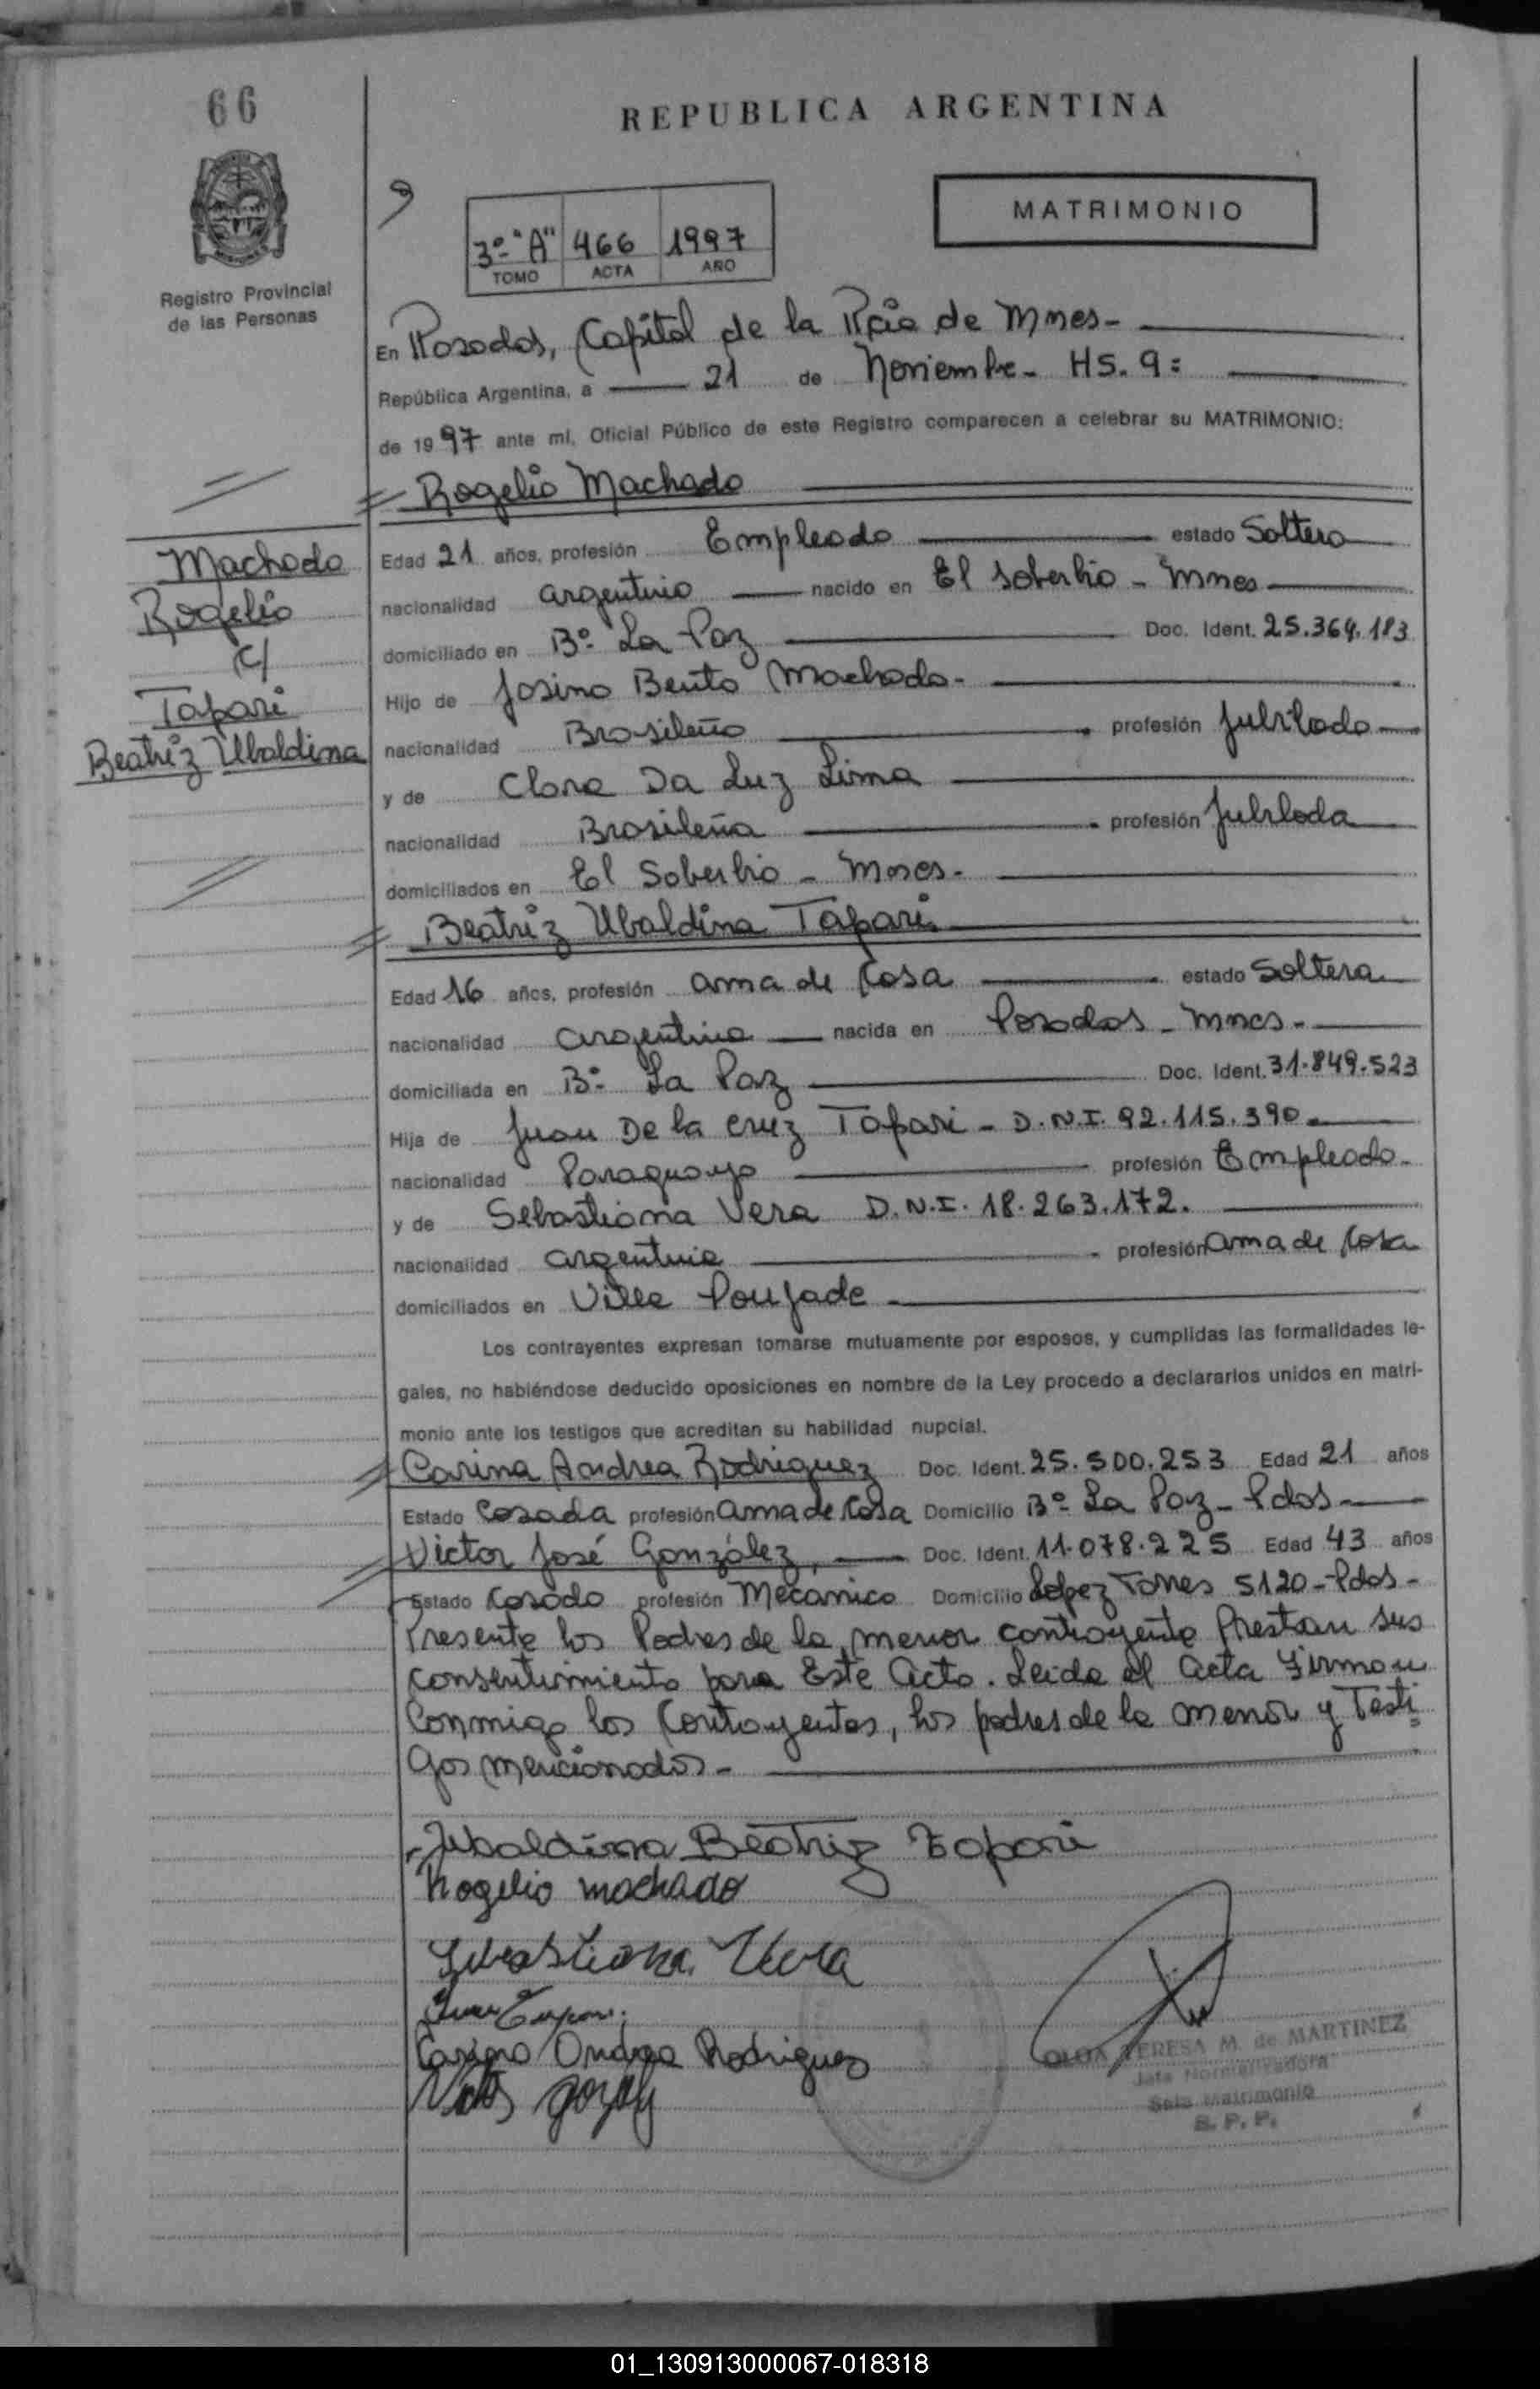 66
REPUBLICA ARGENTINA
MATRIMONIO
3º "A" 466 1997
TOMO ACTA AÑO
Registro Provincial
de las Personas
En Posadas, Capital de la Pcia de Mnes-
República Argentina, a 21 de Noviembre - HS. 9:
de 1997 ante mí, Oficial Público de este Registro comparecen a celebrar su MATRIMONIO:
Rogelio Machado
Machado
Rogelio
C/
Tapari
Beatriz Ubaldina
Edad 21 años, profesión Empleado estado Soltero
nacionalidad argentino nacido en El Soberbio - Mnes
domiciliado en Bº La Paz Doc. Ident. 25.364.183
Hijo de Josino Bento Machado-
nacionalidad Brasileño profesión Jubilado
y de Clara Da Luz Lima
nacionalidad Brasileña profesión Jubilada
domiciliados en El Soberbio - Mnes-
Beatriz Ubaldina Tapari
Edad 16 años, profesión ama de Casa estado Soltera
nacionalidad argentina nacida en Posadas - Mnes-
domiciliada en Bº La Paz Doc. Ident. 31.849.523
Hija de Juan De la cruz Tapari - D.N.I. 92.115.390
nacionalidad Paraguayo profesión Empleado
y de Sebastiana Vera D.N.I. 18.263.172.
nacionalidad argentina profesión ama de Casa
domiciliados en Villa Poujade
Los contrayentes expresan tomarse mutuamente por esposos, y cumplidas las formalidades le-
gales, no habiéndose deducido oposiciones en nombre de la Ley procedo a declararlos unidos en matri-
monio ante los testigos que acreditan su habilidad nupcial.
Carina Andrea Rodriguez Doc. Ident. 25.500.253 Edad 21 años
Estado Casada profesión ama de Casa Domicilio Bº La Paz - Pdas-
Victor José González, Doc. Ident. 11.078.225 Edad 43 años
Estado Casado profesión Mecanico Domicilio López Torres 5120 - Pdas-
Presente los Padres de la menor contrayente Prestan sus
consentimiento para Este Acto. Leida el Acta Firman
Conmigo los Contrayentes, los padres de la menor y Testi
gos mencionados-
Ubaldina Beatriz Tapari
Rogelio machado
Sebastiana Vera
Juan Tapari
Carina Andrea Rodriguez
OLGA TERESA M. de MARTINEZ
Jefa Normalizadora
Sala Matrimonio
R. P. P.
01_130913000067-018318